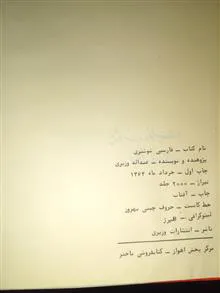 نام کتاب ــ فارسی شوشتری
پژوهنده و نویسنده ــ عبداله وزیری
چاپ اول ــ خرداد ماه ۱۳۶۴
تیراژ ــ ۲۰۰۰ جلد
چاپ ــ آفتاب
خط کاست ــ حروف چینی بهروز
لیتوگرافی ــ البرز
ناشر ــ انتشارات وزیری
مرکز پخش اهواز ــ کتابفروشی باختر